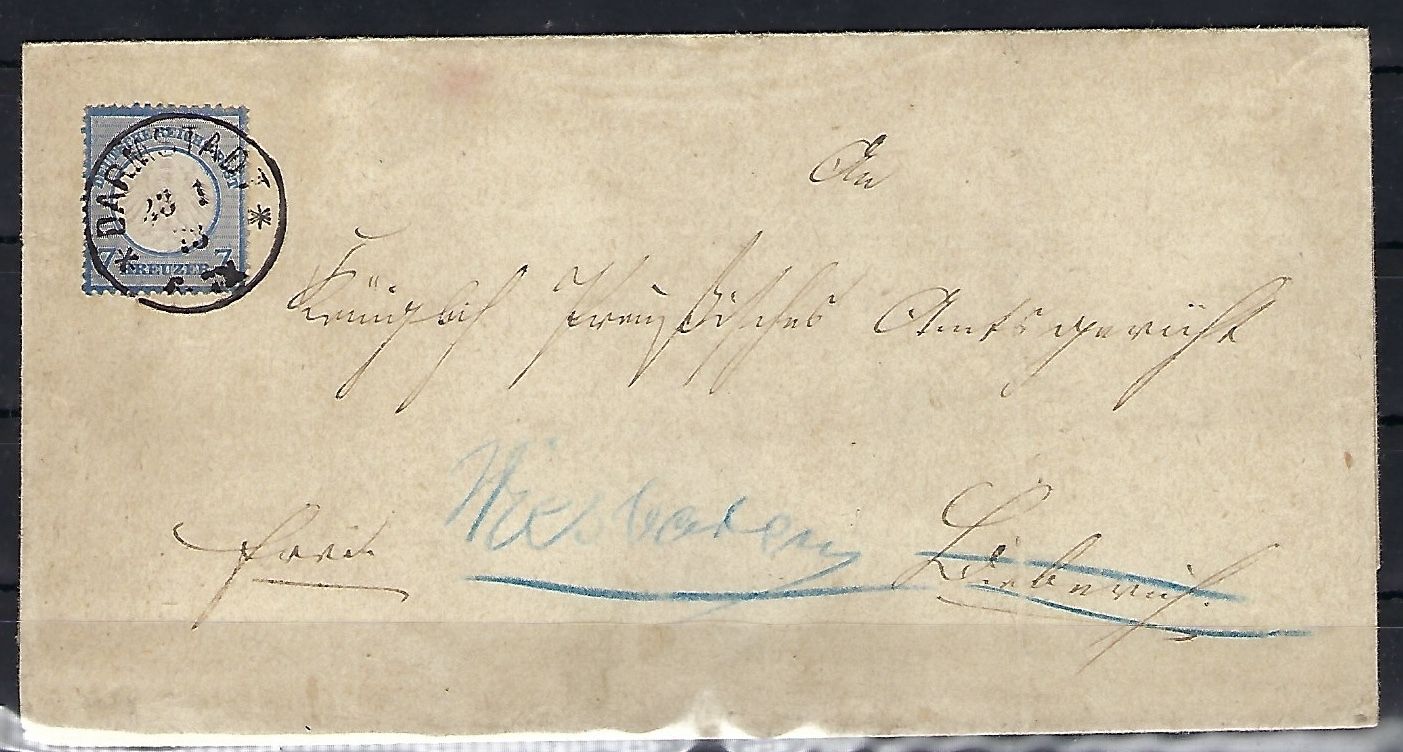 DEUTSCHE REICHS-POST
7 KREUZER 7
* DARMSTADT *
23 1
73
An
Königlich Preußisches Amtsgericht
frei Wiesbaden Bieberich.